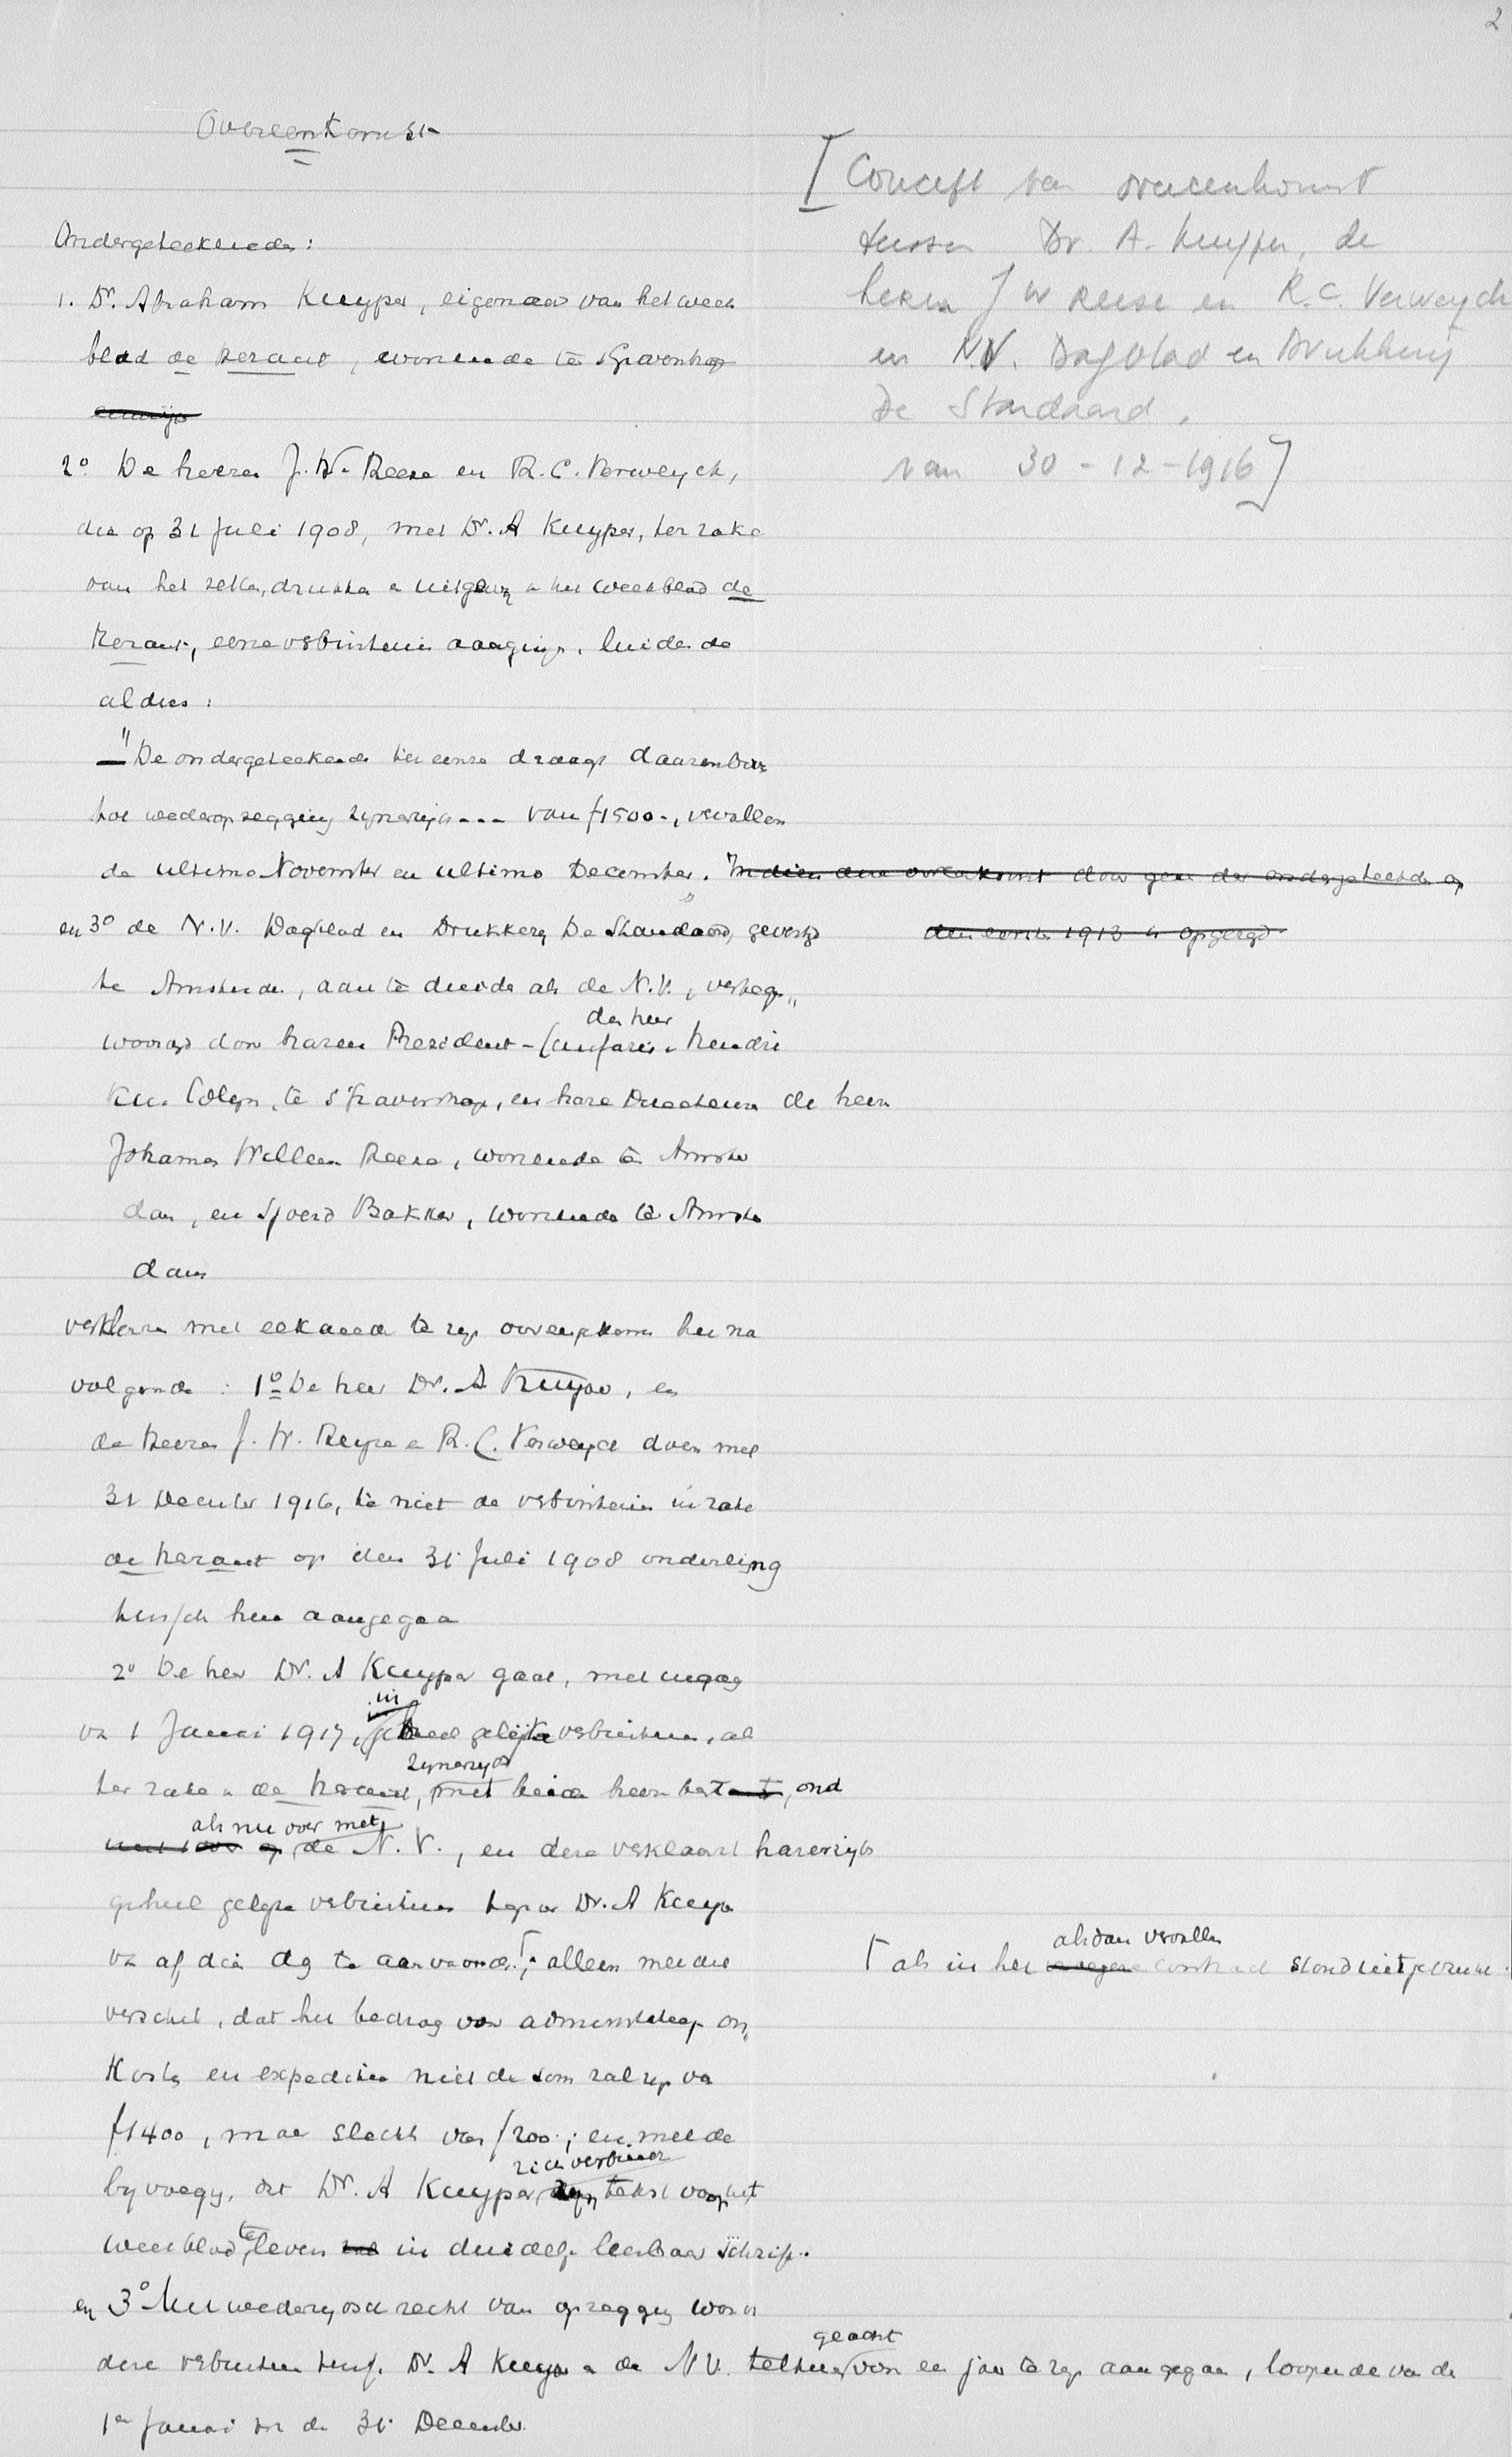 2
Overeenkomst
[Concept van overeenkomst
tussen Dr. A. Kuyper, de
heren J W Reese en R.C. Verweyck
en N.V. Dagblad en Drukkerij
De Standaard.
van 30-12-1916]
Ondergeteekenden:
1. Dr. Abraham Kuyper, eigenaar van het week
blad de Heraut, wonende te 's Gravenhage
2o De heeren J. W. Reese en R. C. Verweyck,
die op 31 Juli 1908, met Dr. A Kuyper, ter zake
van het zetten, drukken en uitgeven van het weekblad de
Heraut, eene verbintenis aangingen, luidende
aldus:
"De ondergeteekende ter eenre draagt daarenboven
tot wederopzegging zynerzijds --- van f1500-, vervallen
de ultimo November en ultimo December. Indien deze overeenkomst door geen der ondergeteekenden op
den eersten 1913 is opgezegd
en 3o de N.V. Dagblad en Drukkerij De Standaard, gevestigd
te Amsterdam, aan te duiden als de N.V., vertegen„
woordigd door haren President-Commissaris den heer Hendri
kus Colijn, te 's Gravenhage, en hare Directeuren de heeren
Johannes Willem Reese, wonende te Amster
dam, en Sjoerd Bakker, wonende te Amster
dam
verklaren met elkander te zijn overeengekomen het na
volgende: 1o De heer Dr. A. Kuyper, en
de heeren J. W. Reese en R. C. Verweyck doen met
31 December 1916, te niet de verbintenis inzake
de Heraut op den 31 Juli 1908 onderling
tusschen hen aangegaan
2o De heer Dr. A Kuyper gaat, met ingang
van 1 Januari 1917, in geheel gelijke verbintenis, als
ter zake van de Heraut, zynerzijds met beide heeren bestond
als nu over met de N. V., en deze verklaart harerzijds
geheel gelijke verbintenis tegenover Dr. A Kuyper
van af dien dag te aanvaarden ⌈; alleen met dit
⌈ als in het vroegere alsdan vervallen contract stond uitgedrukt:
verschil, dat het bedrag voor administratie on„
kosten en expeditie niet de som zal zijn van
f1400, maar slechts van f200; en met de
byvoeging, dat Dr. A Kuyper zich verbindt zijn tekst voor het
weekblad te leveren in duidelijk leesbaar schrift.
en 3o Met wederzijdsch recht van opzegging wordt
deze verbintenis tusschen Dr. A Kuyper en de N.V. geacht telkens voor een jaar te zijn aangegaan, loopende van den
1en Januari tot den 31 December.